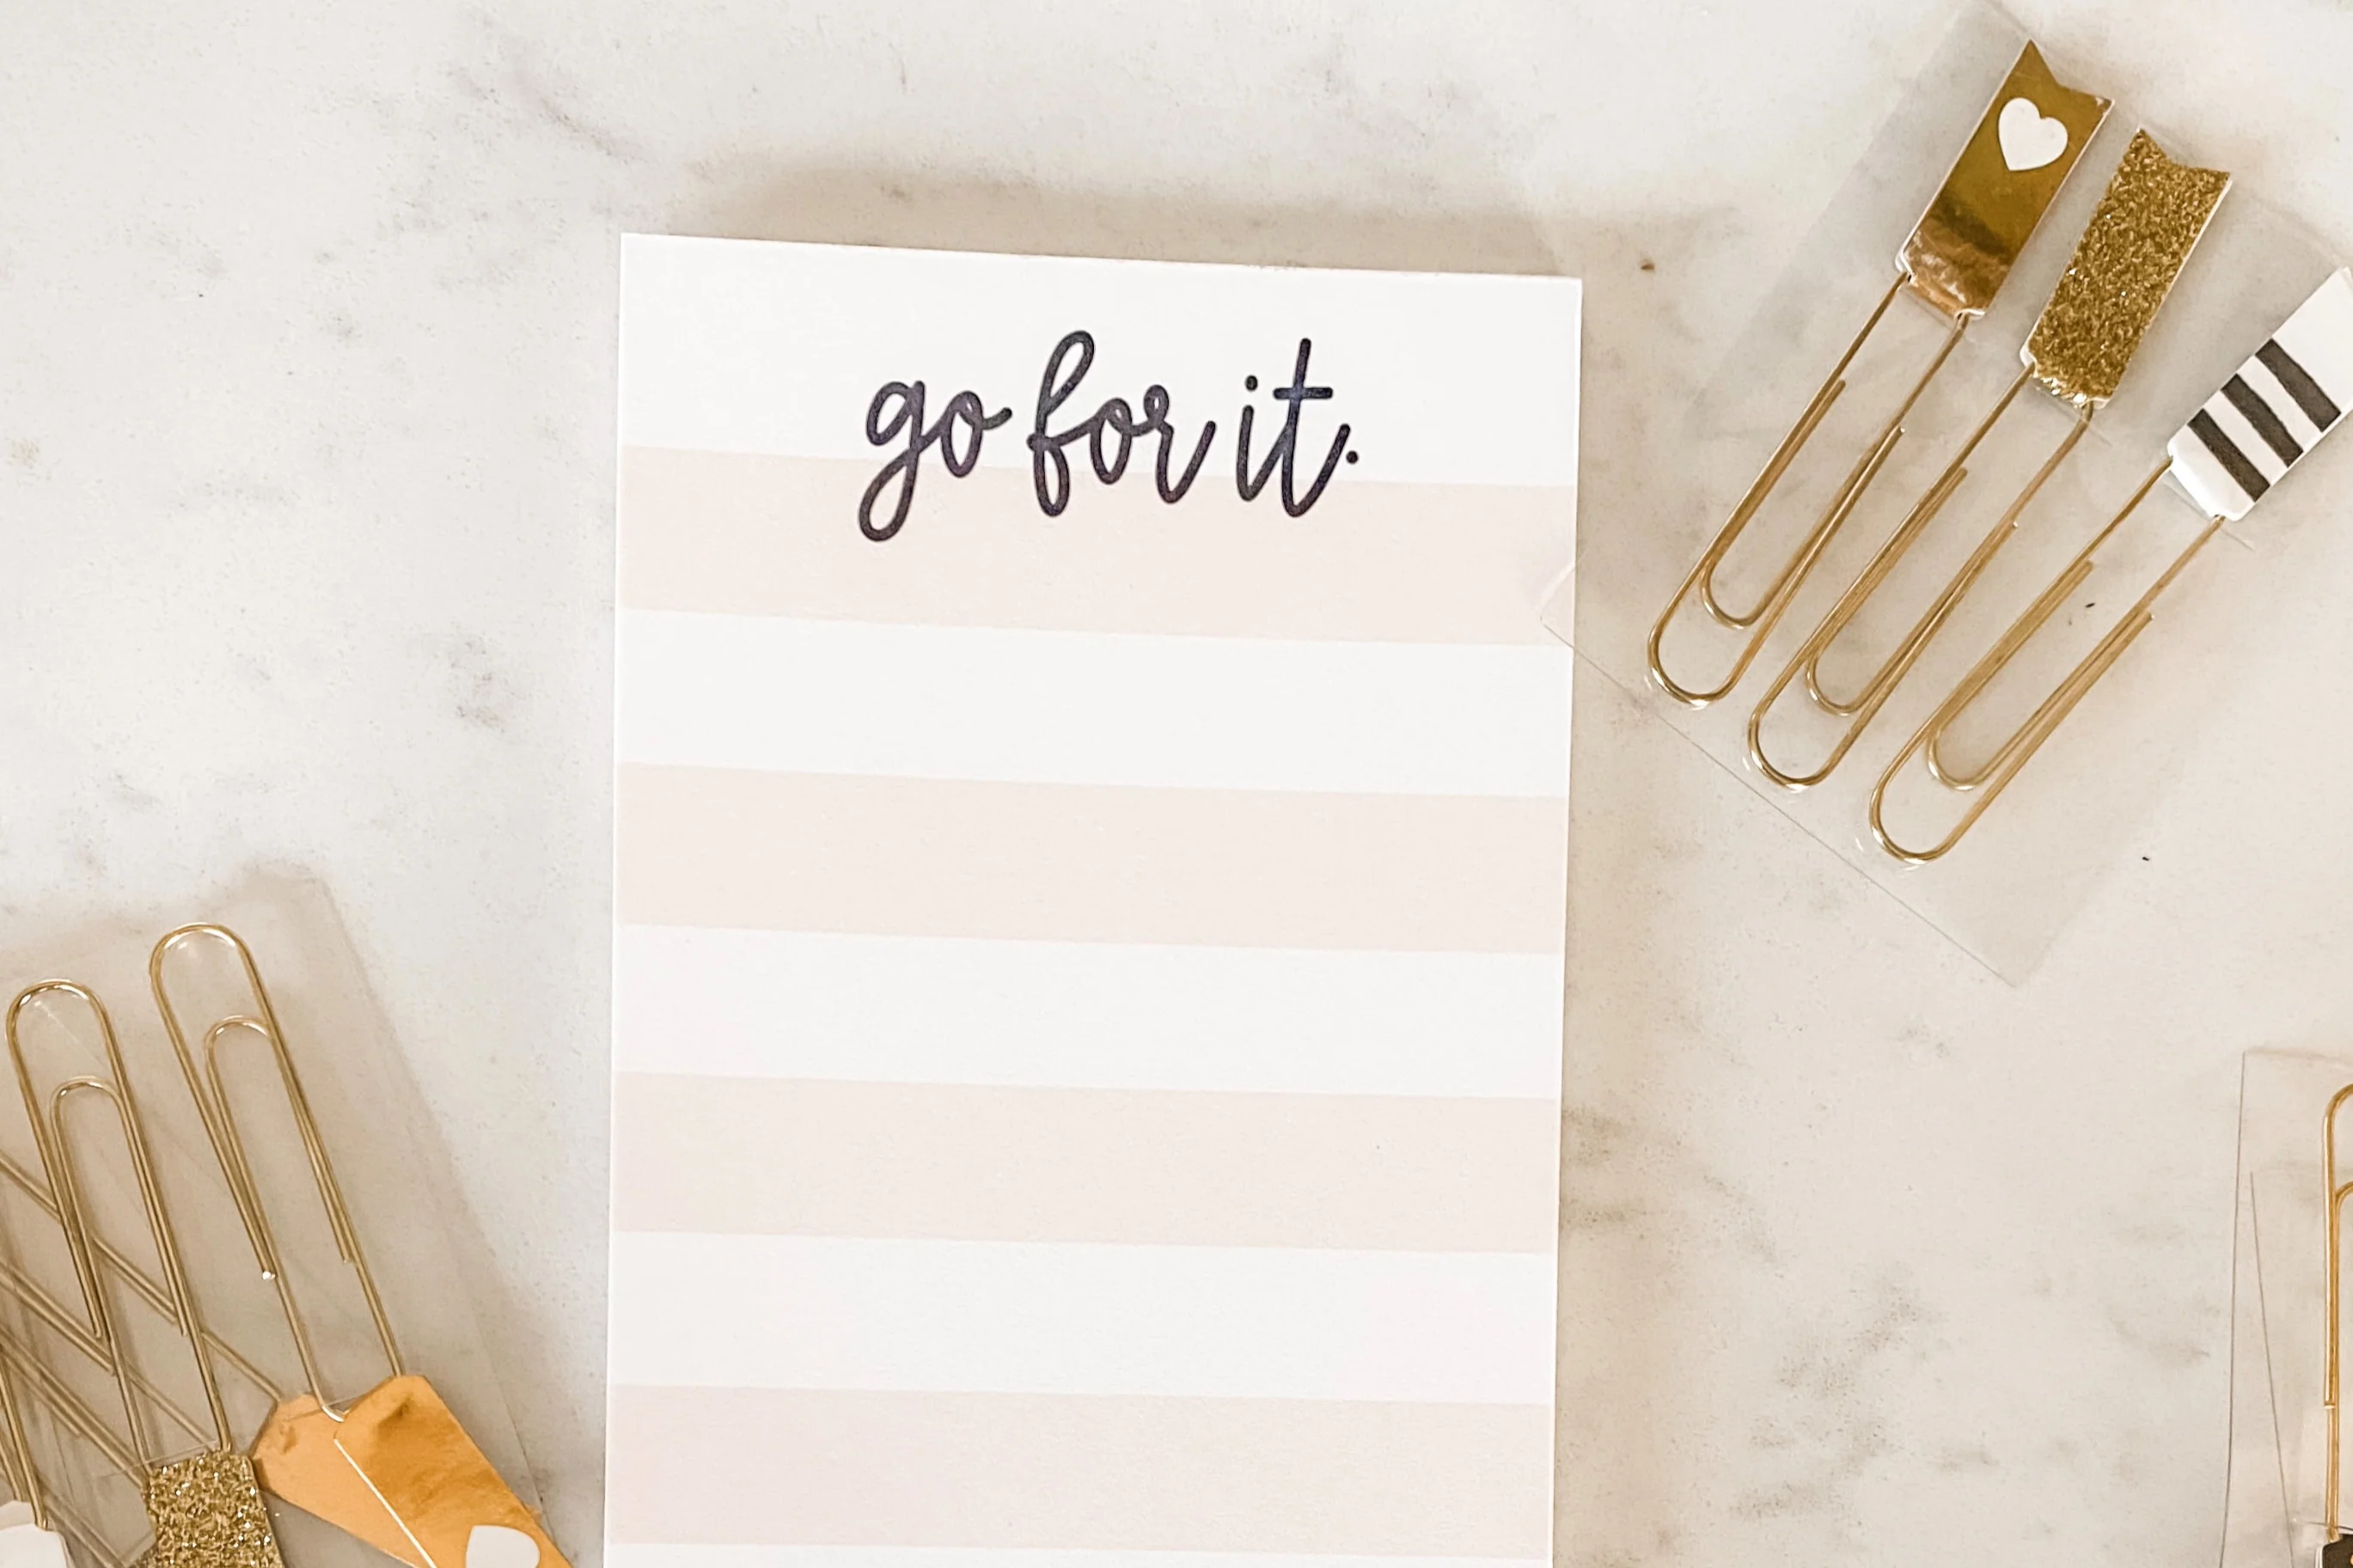 go for it.